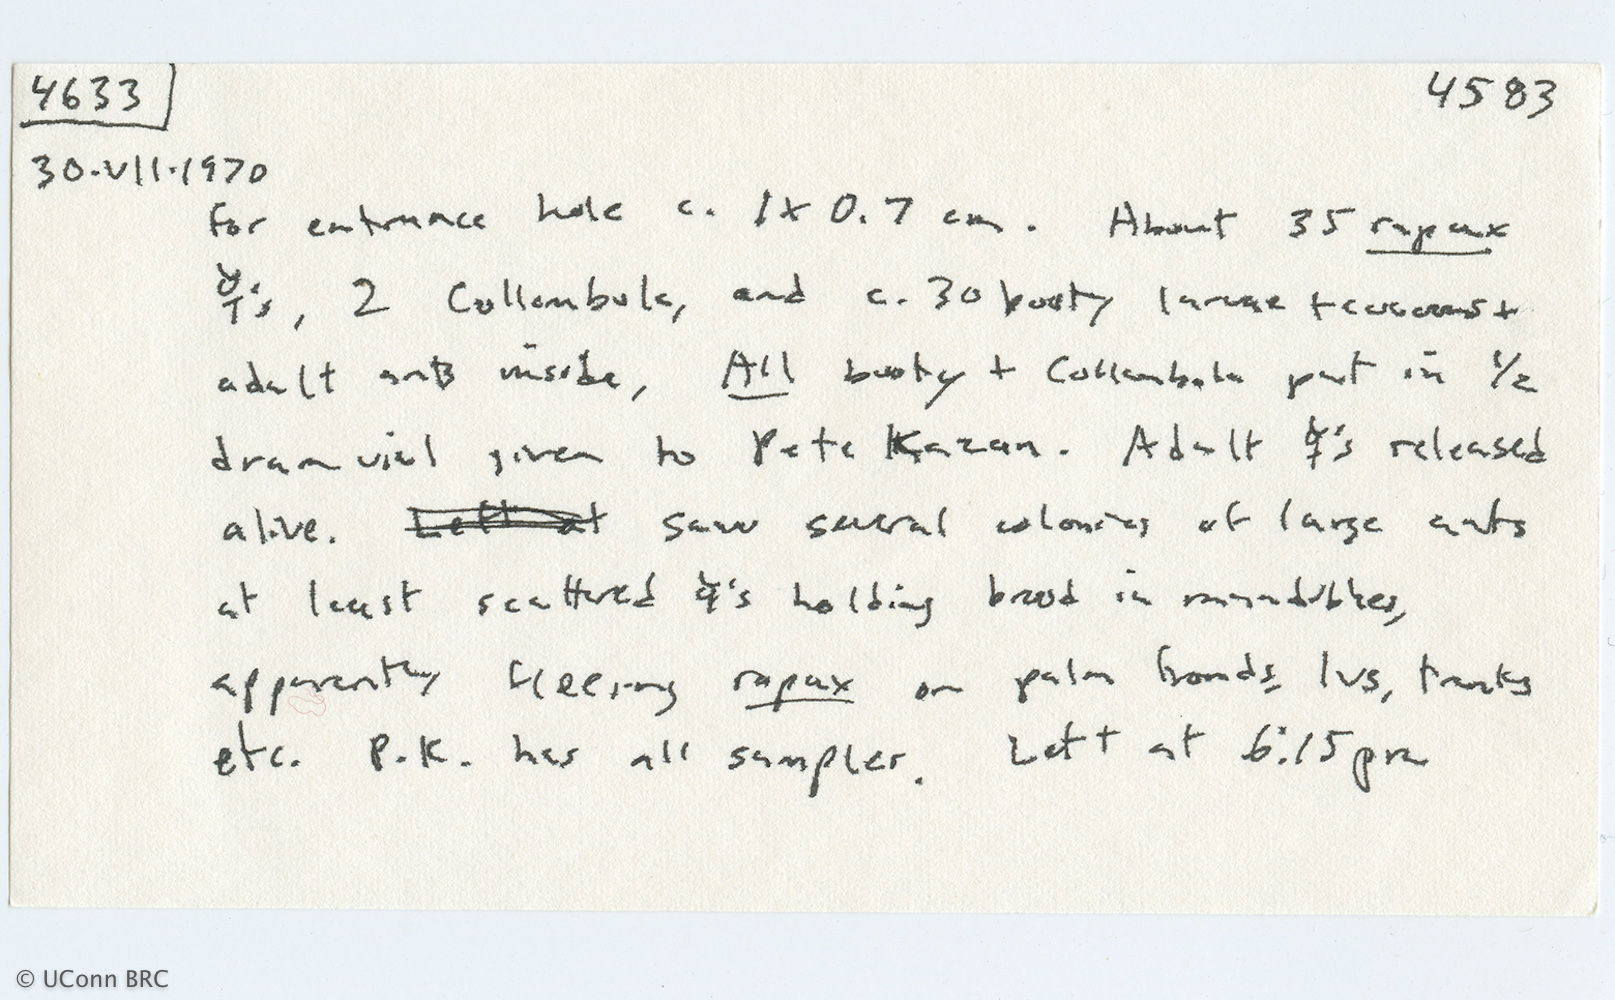 4633 4583
30.VII.1970
For entrance hole c. 1 x 0.7 cm. About 35 rapax
☿'s, 2 Collembola, and c. 30 booty larvae + cocoons +
adult ants inside, All booty + Collembola put in 1/2
dram vial given to Pete Kazan. Adult ☿'s released
alive. Left at saw several colonies of large ants
at least scattered ☿'s holding brood in mandibles,
apparently fleeing rapax on palm fronds, lvs, trunks
etc. P.K. has all samples. Left at 6:15 pm
© UConn BRC